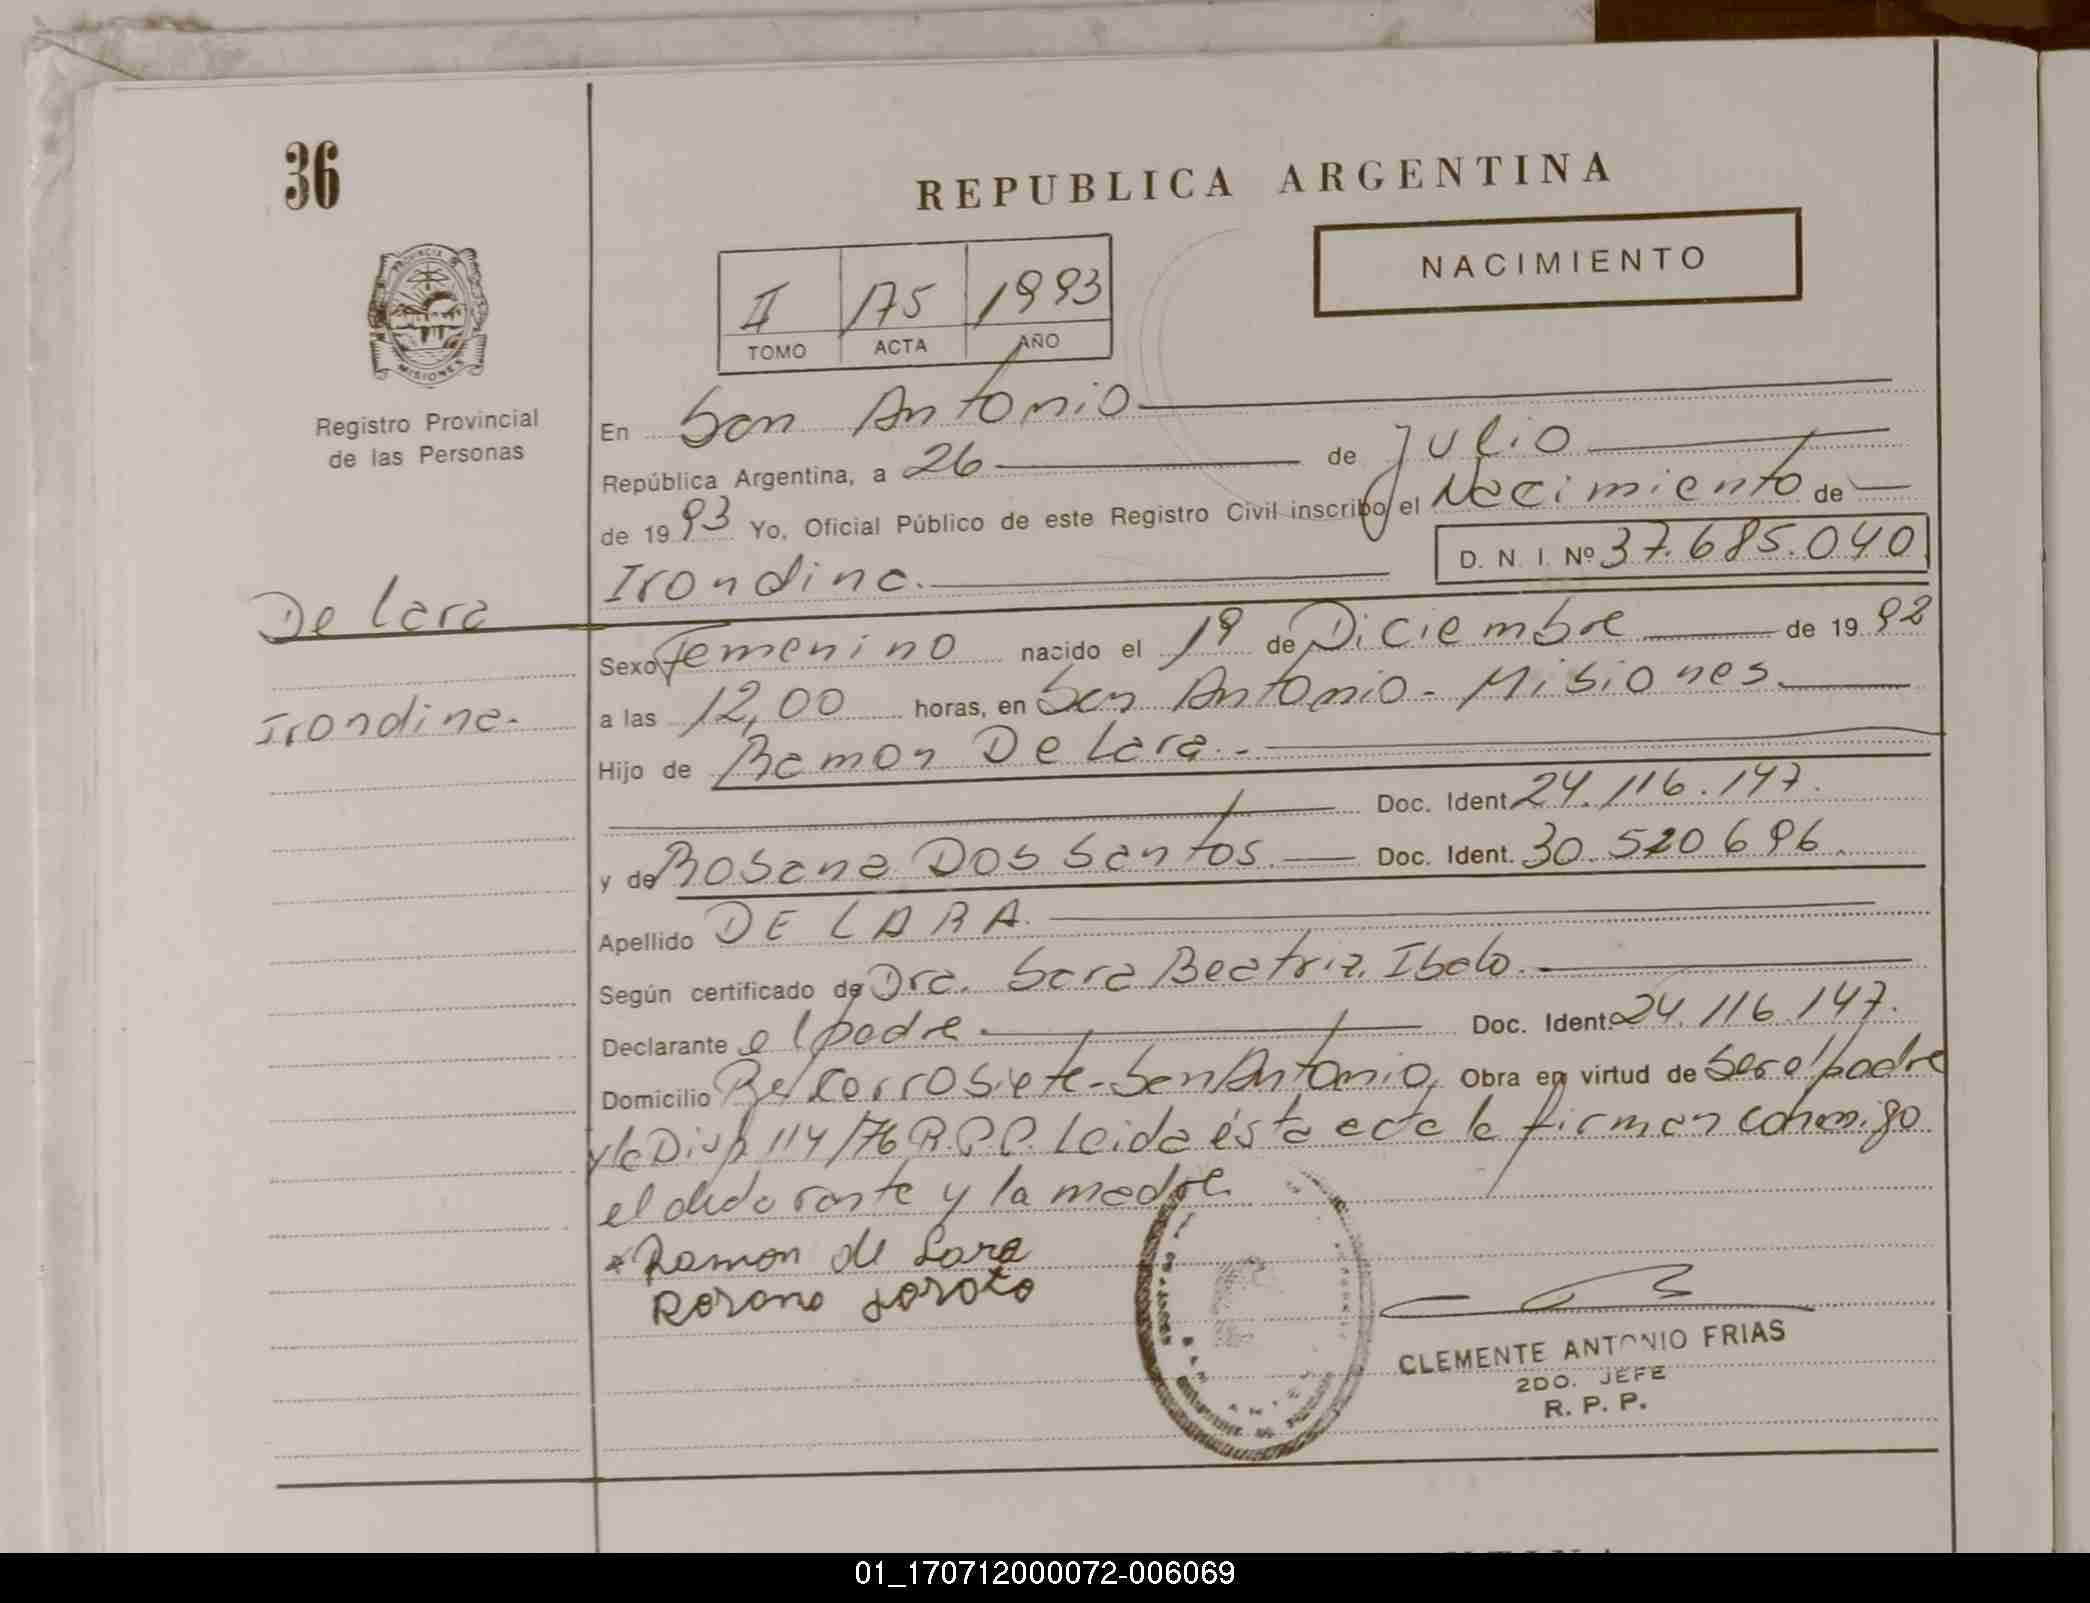 36
REPUBLICA ARGENTINA
NACIMIENTO
II 175 1993
TOMO ACTA AÑO
PROVINCIA DE
MISIONES
Registro Provincial
de las Personas
En San Antonio
República Argentina, a 26 de Julio
de 1993 Yo, Oficial Público de este Registro Civil inscribo el Nacimiento de
Irondina. D. N. I. Nº 37.685.040
De Lara
Sexo Femenino nacido el 19 de Diciembre de 1992
Irondina.
a las 12,00 horas, en San Antonio - Misiones.
Hijo de Ramon De Lara.-
Doc. Ident. 24.116.147.
y de Rosana Dos Santos. Doc. Ident. 30.520696.
Apellido DE LARA.
Según certificado de Dra. Sara Beatriz
Declarante el padre. Doc. Ident. 24.116.147.
Domicilio San Antonio, Obra en virtud de ser el padre
y la Disp 114/76 R.P.P. Leida ésta acta la firman conmigo
el declarante y la madre
Ramon de Lara
CLEMENTE ANTONIO FRIAS
2DO. JEFE
R. P. P.
01_170712000072-006069